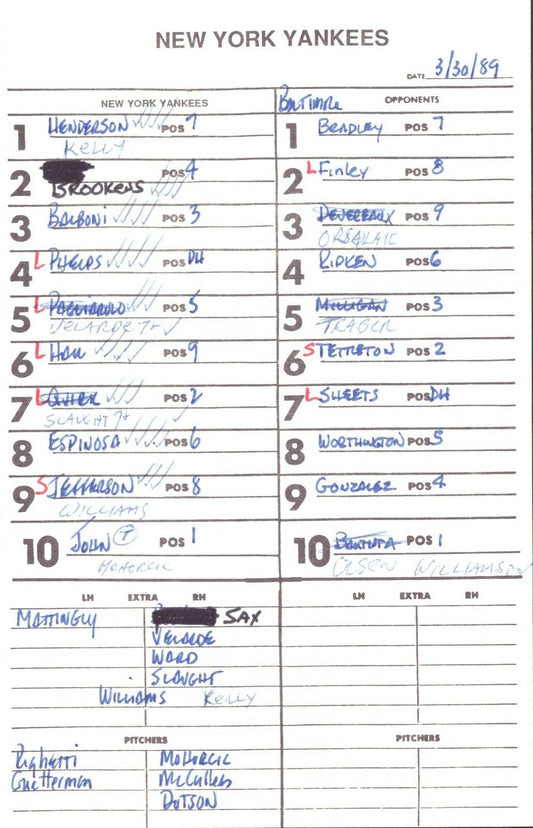 NEW YORK YANKEES
DATE 3/30/89
NEW YORK YANKEES
1 HENDERSON POS 7
Kelly
2 BROOKENS POS 4
3 BALBONI POS 3
4 L PHELPS POS DH
5 L PAGLIARULO POS 5
VELARDE 7th
6 L HALL POS 9
7 L QUIRK POS 2
SLAUGHT 7th
8 ESPINOSA POS 6
9 S JEFFERSON POS 8
WILLIAMS
10 JOHN T POS 1
MOHORCIC
Baltimore OPPONENTS
1 BRADLEY POS 7
2 L Finley POS 8
3 DEVEREAUX POS 9
ORSULAK
4 RIPKEN POS 6
5 MILLIGAN POS 3
TRABER
6 S TETTLETON POS 2
7 L SHEETS POS DH
8 WORTHINGTON POS 5
9 GONZALEZ POS 4
10 BAUTISTA POS 1
OLSON WILLIAMSON
LH EXTRA RH
MATTINGLY SAX
VELARDE
WARD
SLAUGHT
WILLIAMS Kelly
PITCHERS
Righetti MOHORCIC
Guetterman McCullers
DOTSON
LH EXTRA RH
PITCHERS